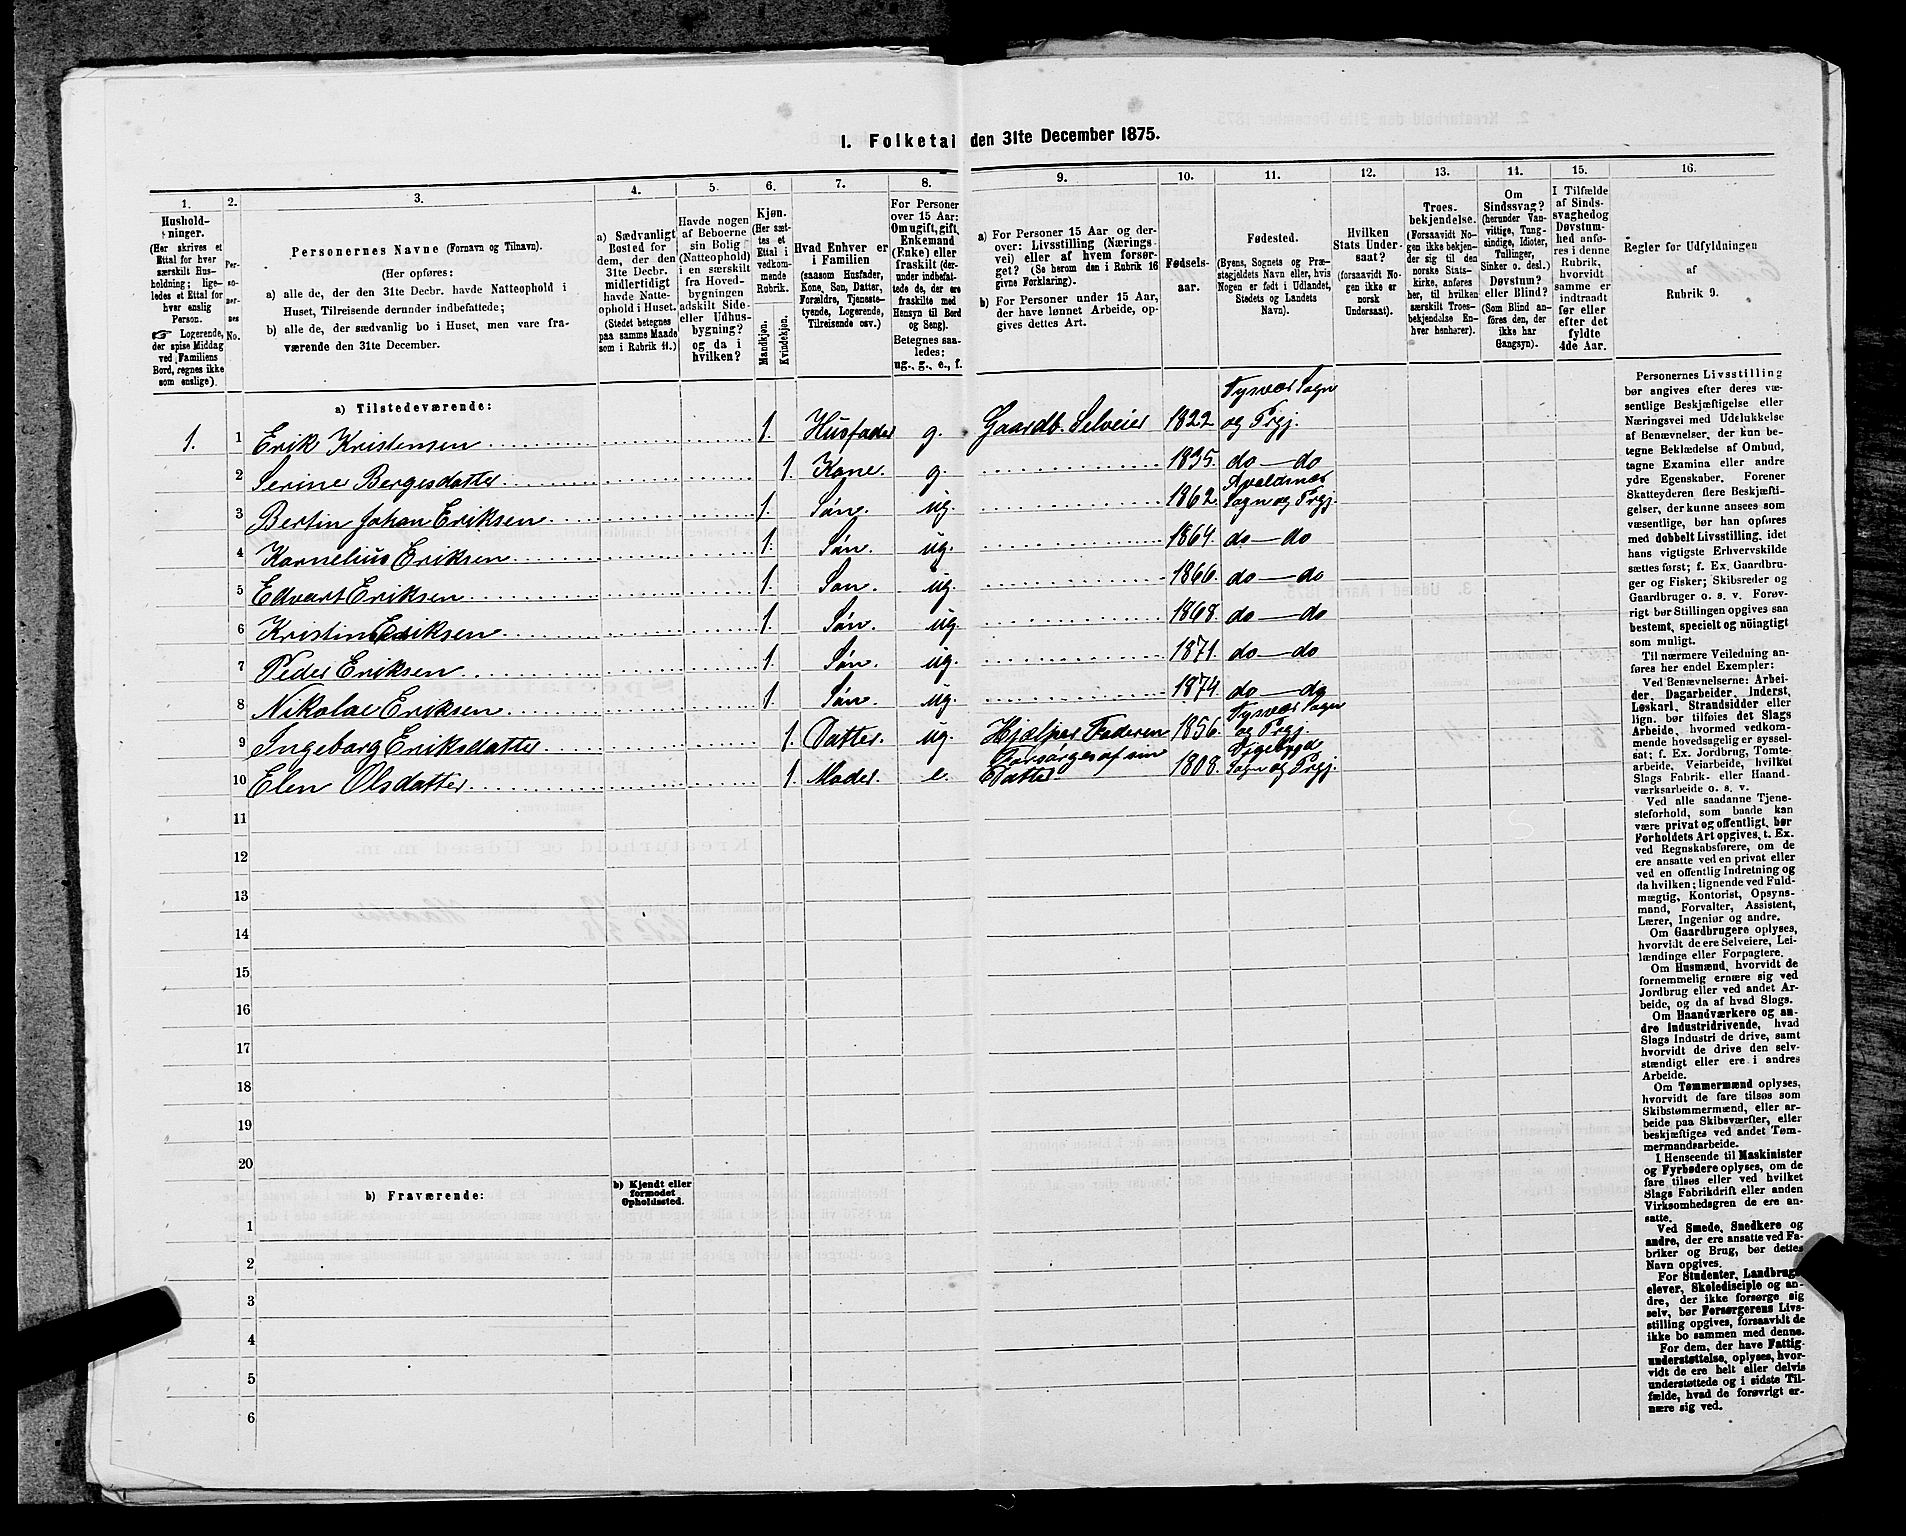 1. Folketal den 31te December 1875.
1.
Hushold-
ninger.
(Her skrives et
Ettal for hver
særskilt Hus-
holdning; lige-
ledes et Ettal for
hver enslig
Person.
☞ Logerende,
der spise Middag
ved Familiens
Bord, regnes ikke
som enslige).
2.
Per-
so-
ner-
nes
No.
3.
Personernes Navne (Fornavn og Tilnavn).
(Her opføres:
a) alle de, der den 31te Decbr. havde Natteophold i
Huset, Tilreisende derunder indbefattede;
b) alle de, der sædvanlig bo i Huset, men vare fra-
værende den 31te December.
4.
a) Sædvanligt
Bosted for
dem, der den
31te Decbr.
midlertidigt
havde Natte-
ophold i Huset.
(Stedet betegnes
paa samme Maade
som i Rubrik 11.)
5.
Havde nogen
af Beboerne
sin Bolig
(Natteophold)
i en særskilt
fra Hoved-
bygningen
adskilt Side-
eller Udhus-
bygning?
og da i
hvilken?
6.
Kjøn.
(Her sæt-
tes et
Ettal i
vedkom-
mende
Rubrik.
Mandkjøn.
Kvindekjøn.
7.
Hvad Enhver er
i Familien
(saasom Husfader,
Kone, Søn, Datter,
Forældre, Tjeneste-
tyende, Logerende,
Tilreisende osv.)
8.
For Personer
over 15 Aar:
Om ugift, gift,
Enkemand
(Enke) eller
fraskilt (der-
under indbefat-
tede de, der ere
fraskilte med
Hensyn til Bord
og Seng).
Betegnes saa-
ledes:
ug., g., e., f.
9.
a) For Personer 15 Aar og der-
over: Livsstilling (Nærings-
vei) eller af hvem forsør-
get? (Se herom den i Rubrik 16
givne Forklaring).
b) For Personer under 15 Aar,
der have lønnet Arbeide, op-
gives dettes Art.
10.
Fødsels-
aar.
11.
Fødested.
(Byens, Sognets og Præ-
stegjeldets Navn eller, hvis
Nogen er født i Udlandet,
Stedets og Landets
Navn).
12.
Hvilken
Stats Under-
saat?
(forsaavidt No-
gen ikke er
norsk
Undersaat).
13.
Troes-
bekjendelse.
(Forsaavidt No-
gen ikke bekjen-
der sig til den
norske Stats-
kirke, anføres
her, til hvilken
særskilt Troes-
bekjendelse En-
hver henhører).
14.
Om
Sindssvag?
(herunder Van-
vittige, Tung-
sindige, Idioter,
Tullinger,
Sinker o. desl.)
Døvstum?
eller Blind?
(Som Blind an-
føres den, der
ikke har
Gangsyn).
15.
I Tilfælde
af Sinds-
svaghed og
Døvstum-
hed anfø-
res i denne
Rubrik,
hvorvidt
samme er
indtraadt
før eller
efter det
fyldte
4de Aar.
16.
Regler for Udfyldningen
af
Rubrik 9.
a) Tilstedeværende:
1. 1 Erik Kristensen 1. Husfader g. Gaardb. Selveier 1822 Tysvær Sogn
og Prgj.
2 Serine Bergesdatter 1. Kone. g. 1835. do — do
3 Bertin Johan Eriksen 1. Søn. ug. 1862. Avaldsnæs
Sogn og Prgj.
4 Kornelius Eriksen 1. Søn. ug. 1864. do — do
5 Edvart Eriksen 1. Søn. ug. 1866. do — do
6 Kristin Eriksen 1. Søn. ug. 1868. do — do
7 Peder Eriksen 1. Søn. ug. 1871. do — do
8 Nikolai Eriksen 1. Søn. ug. 1874. do — do
9 Ingeborg Eriksdatter 1. Datter. ug. Hjælper Faderen 1856. Tysvær Sogn
og Prgj.
10 Elen Olsdatter 1. Moder. e. Forsørges af sin
Datter 1808. Sogn og Prgj.
11
12
13
14
15
16
17
18
19
20
b) Fraværende:
b) Kjendt eller
formodet
Opholdssted.
1
2
3
4
5
6
Personernes Livsstilling
bør angives efter deres væ-
sentlige Beskjæftigelse eller
Næringsvei med Udelukkelse
af Benævnelser, der kun be-
tegne Beklædelse af Ombud,
tagne Examina eller andre
ydre Egenskaber. Forener
Skatteyderen flere Beskjæfti-
gelser, der kunne ansees som
væsentlige, bør han opføres
med dobbelt Livsstilling, idet
hans vigtigste Erhvervskilde
sættes først; f. Ex. Gaardbru-
ger og Fisker; Skibsreder og
Gaardbruger o. s. v. Forøv-
rigt bør Stillingen opgives saa
bestemt, specielt og nöiagtigt
som muligt.
Til nærmere Veiledning an-
føres her endel Exempler:
Ved Benævnelserne: Arbei-
der, Dagarbeider, Inderst,
Løskarl, Strandsidder eller
lign. bør tilføies det Slags
Arbeide, hvormed vedkom-
mende hovedsagelig er syssel-
sat; f. Ex. Jordbrug, Tomte-
arbeide, Veiarbeide, hvilket
Slags Fabrik- eller Haand-
værksarbeide o. s. v.
Ved alle saadanne Tjene-
steforhold, som baade kan
være privat og offentligt, bør
Forholdets Art opgives, t. Ex.
ved Regnskabsførere, om de
ere ansatte ved en privat eller
ved en offentlig Indretning og
da hvilken; lignende ved Fuld-
mægtig, Kontorist, Opsyns-
mand, Forvalter, Assistent,
Lærer, Ingeniør og andre.
Om Gaardbrugere oplyses,
hvorvidt de ere Selveiere, Lei-
lændinge eller Forpagtere.
Om Husmænd, hvorvidt de
fornemmelig ernære sig ved
Jordbrug eller ved andet Ar-
beide, og da af hvad Slags.
Om Haandværkere og an-
dre Industridrivende, hvad
Slags Industri de drive, samt
hvorvidt de drive den selv-
stændigt eller ere i andres
Arbeide.
Om Tømmermænd oplyses,
hvorvidt de fare tilsøs som
Skibstømmermænd, eller ar-
beide paa Skibsværfter, eller
beskjæftiges ved andet Tøm-
mermandsarbeide.
I Henseende til Maskinister
og Fyrbødere oplyses, om de
fare tilsøs eller ved hvilket
Slags Fabrikdrift eller anden
Virksomhedsgren de ere an-
satte.
Ved Smede, Snedkere og
andre, der ere ansatte ved Fa-
briker og Brug, bør dettes
Navn opgives.
For Studenter, Landbrugs-
elever, Skoledisciple og an-
dre, der ikke forsørge sig
selv, bør Forsørgerens Livs-
stilling opgives, forsaavidt de
ikke bo sammen med denne.
For dem, der have Fattig-
understøttelse, oplyses, hvor-
vidt de ere helt eller delvis
understøttede og i sidste Til-
fælde, hvad de forøvrigt er-
nære sig ved.